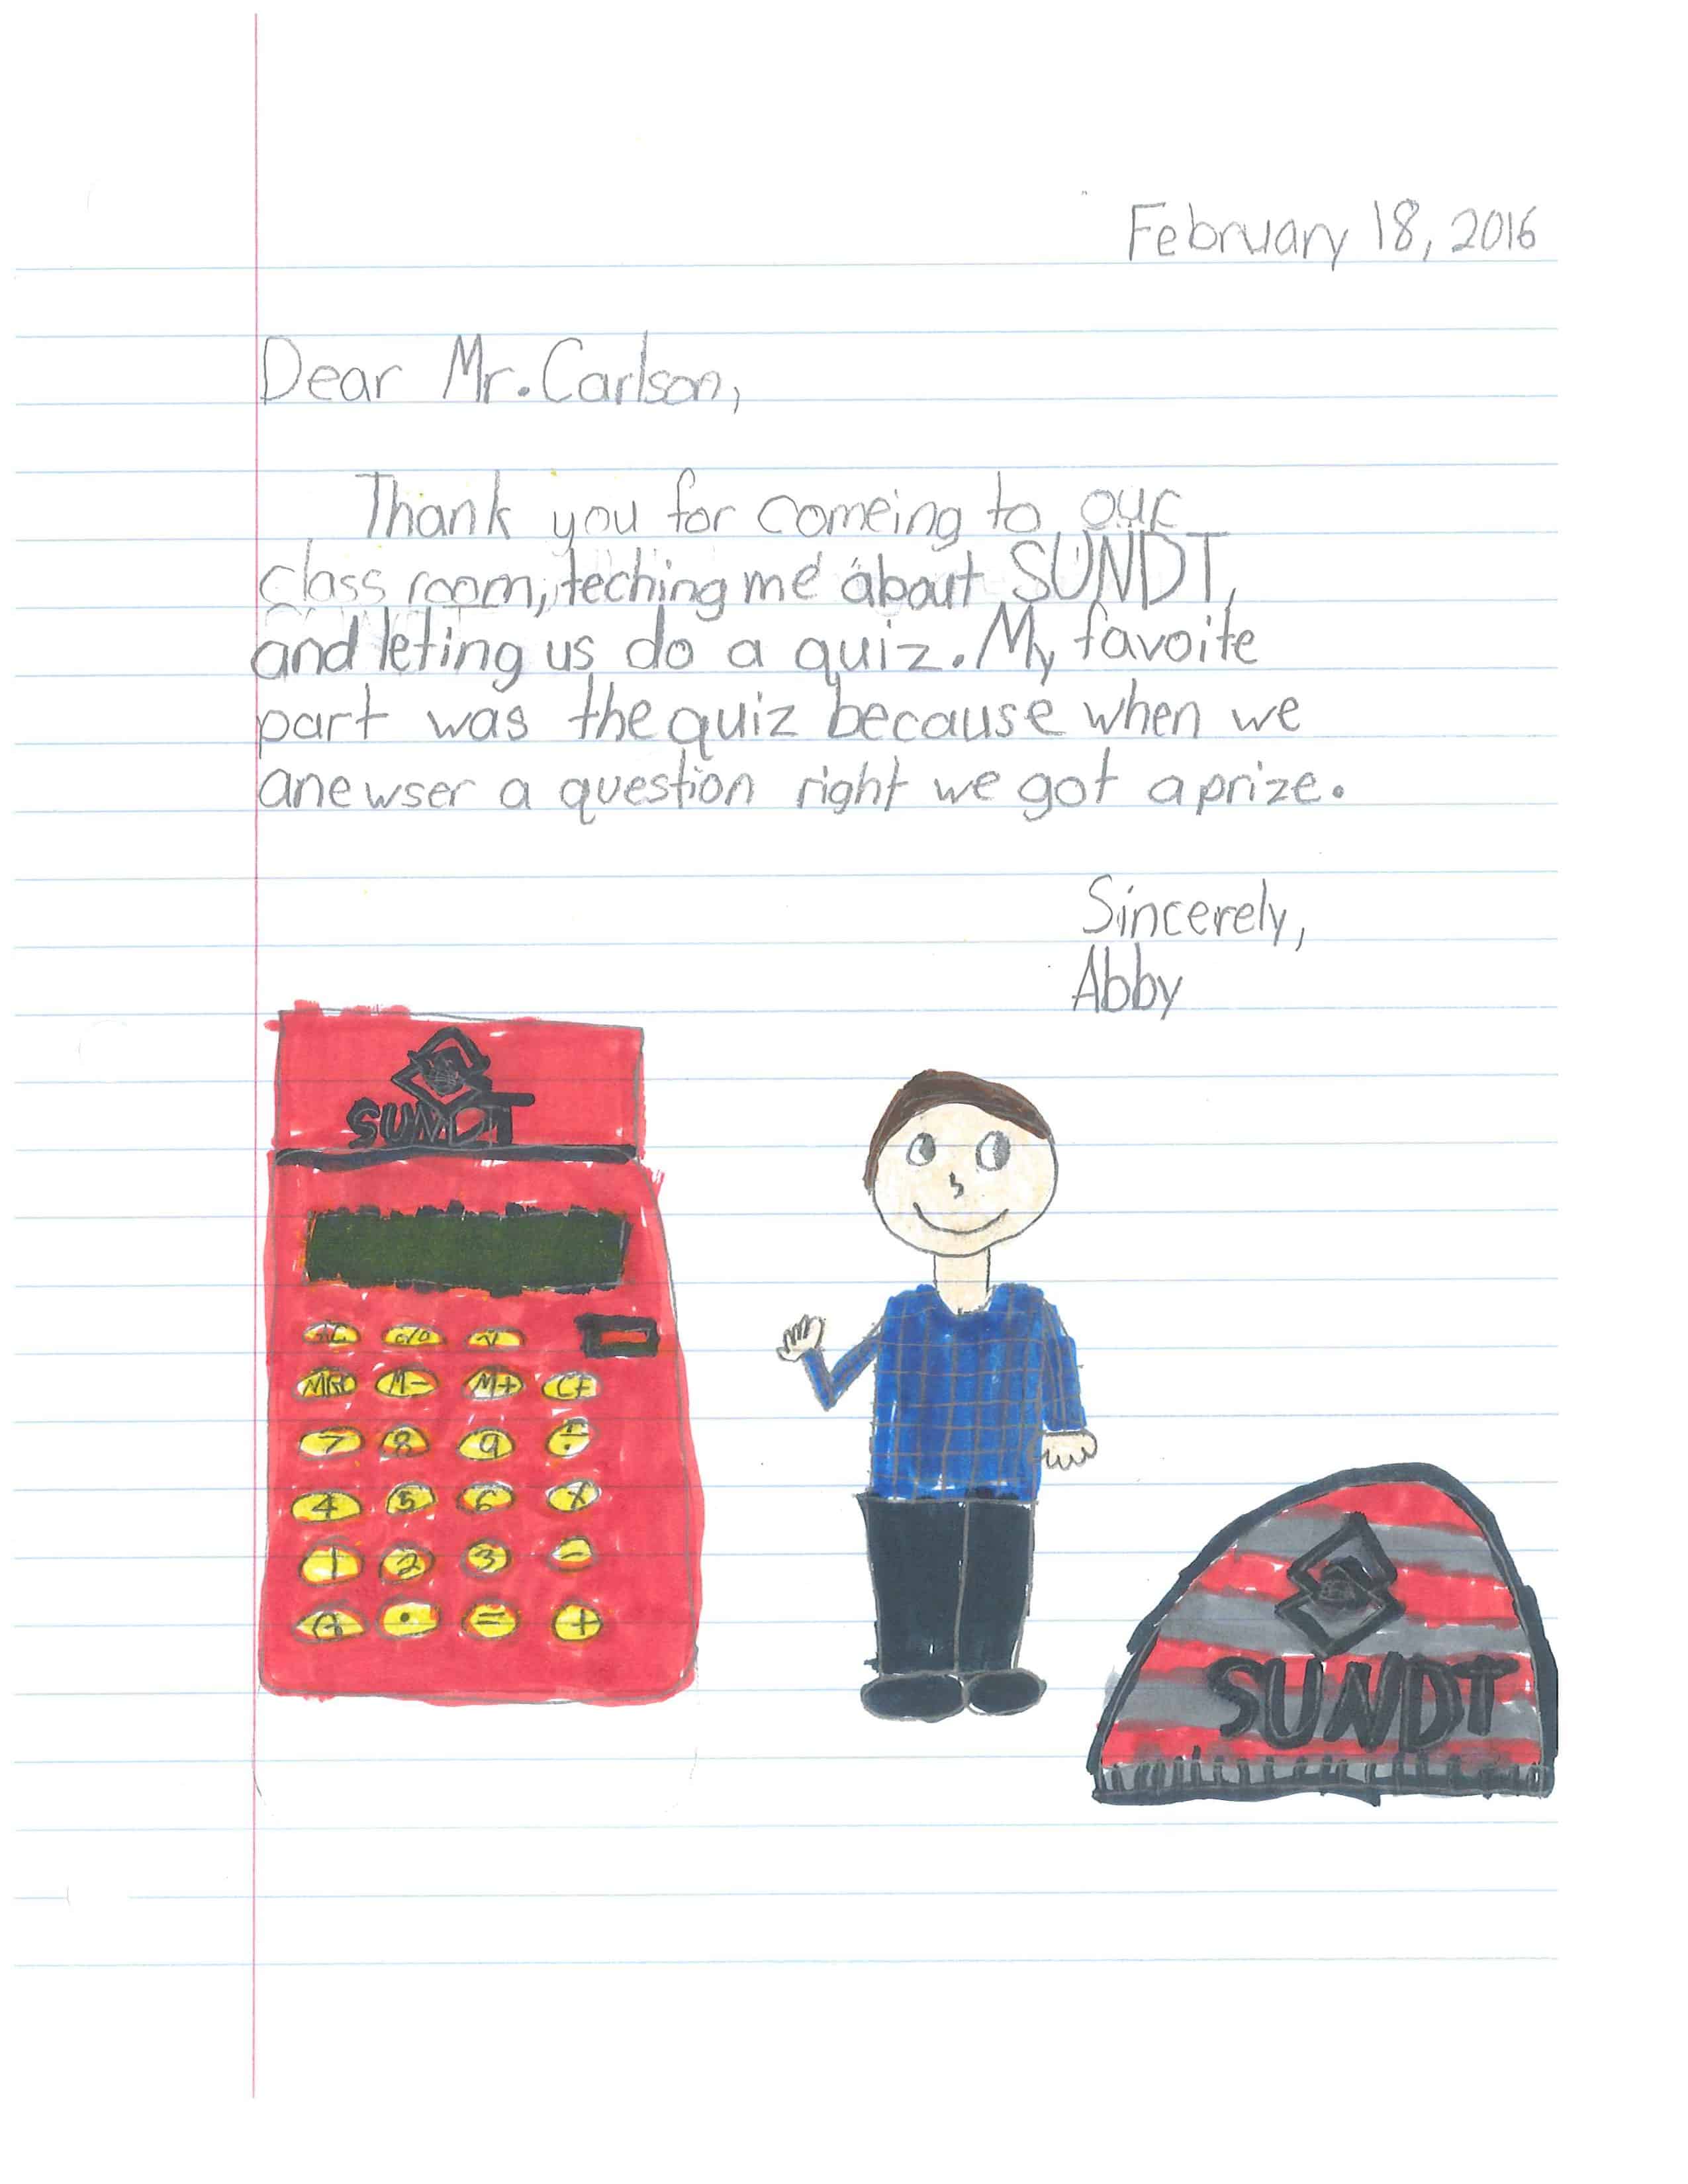 February 18, 2016
Dear Mr. Carlson,
Thank you for comeing to our
class room, teching me about SUNDT,
and leting us do a quiz. My favoite
part was the quiz because when we
anewser a question right we got a prize.
Sincerely,
Abby
SUNDT
% √
MRC M- M+ CE
7 8 9 ÷
4 5 6 X
1 2 3 -
0 . = +
SUNDT